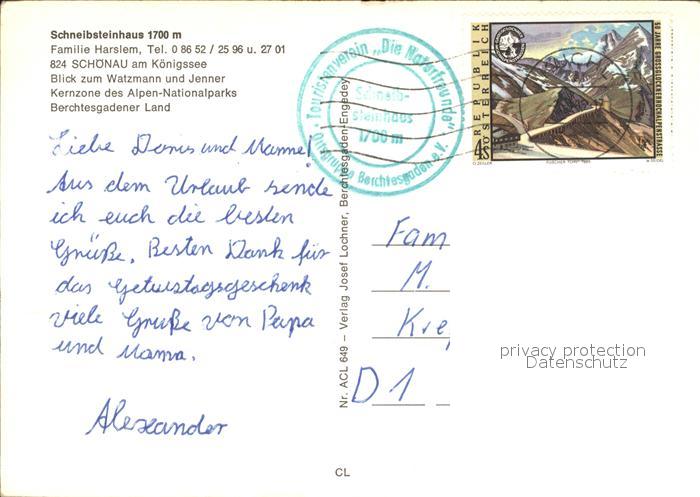 Schneibsteinhaus 1700 m
Familie Harslem, Tel. 0 86 52 / 25 96 u. 27 01
824 SCHÖNAU am Königssee
Blick zum Watzmann und Jenner
Kernzone des Alpen-Nationalparks
Berchtesgadener Land
Liebe Doris und Manne!
Aus dem Urlaub sende
ich euch die besten
Grüße. Besten Dank für
das Geturstagsgeschenk
viele Grüße von Papa
und Mama.
Alexander
Touristenverein „Die Naturfreunde"
Schneib-
steinhaus
1700 m
Ortsgruppe Berchtesgaden e.V.
Nr. ACL 649 – Verlag Josef Lochner, Berchtesgaden-Engedey
CL
REPUBLIK
ÖSTERREICH
4S
50 JAHRE GROSSGLOCKNERHOCHALPENSTRASSE
Fam
M.
Kre
D 1
privacy protection
Datenschutz